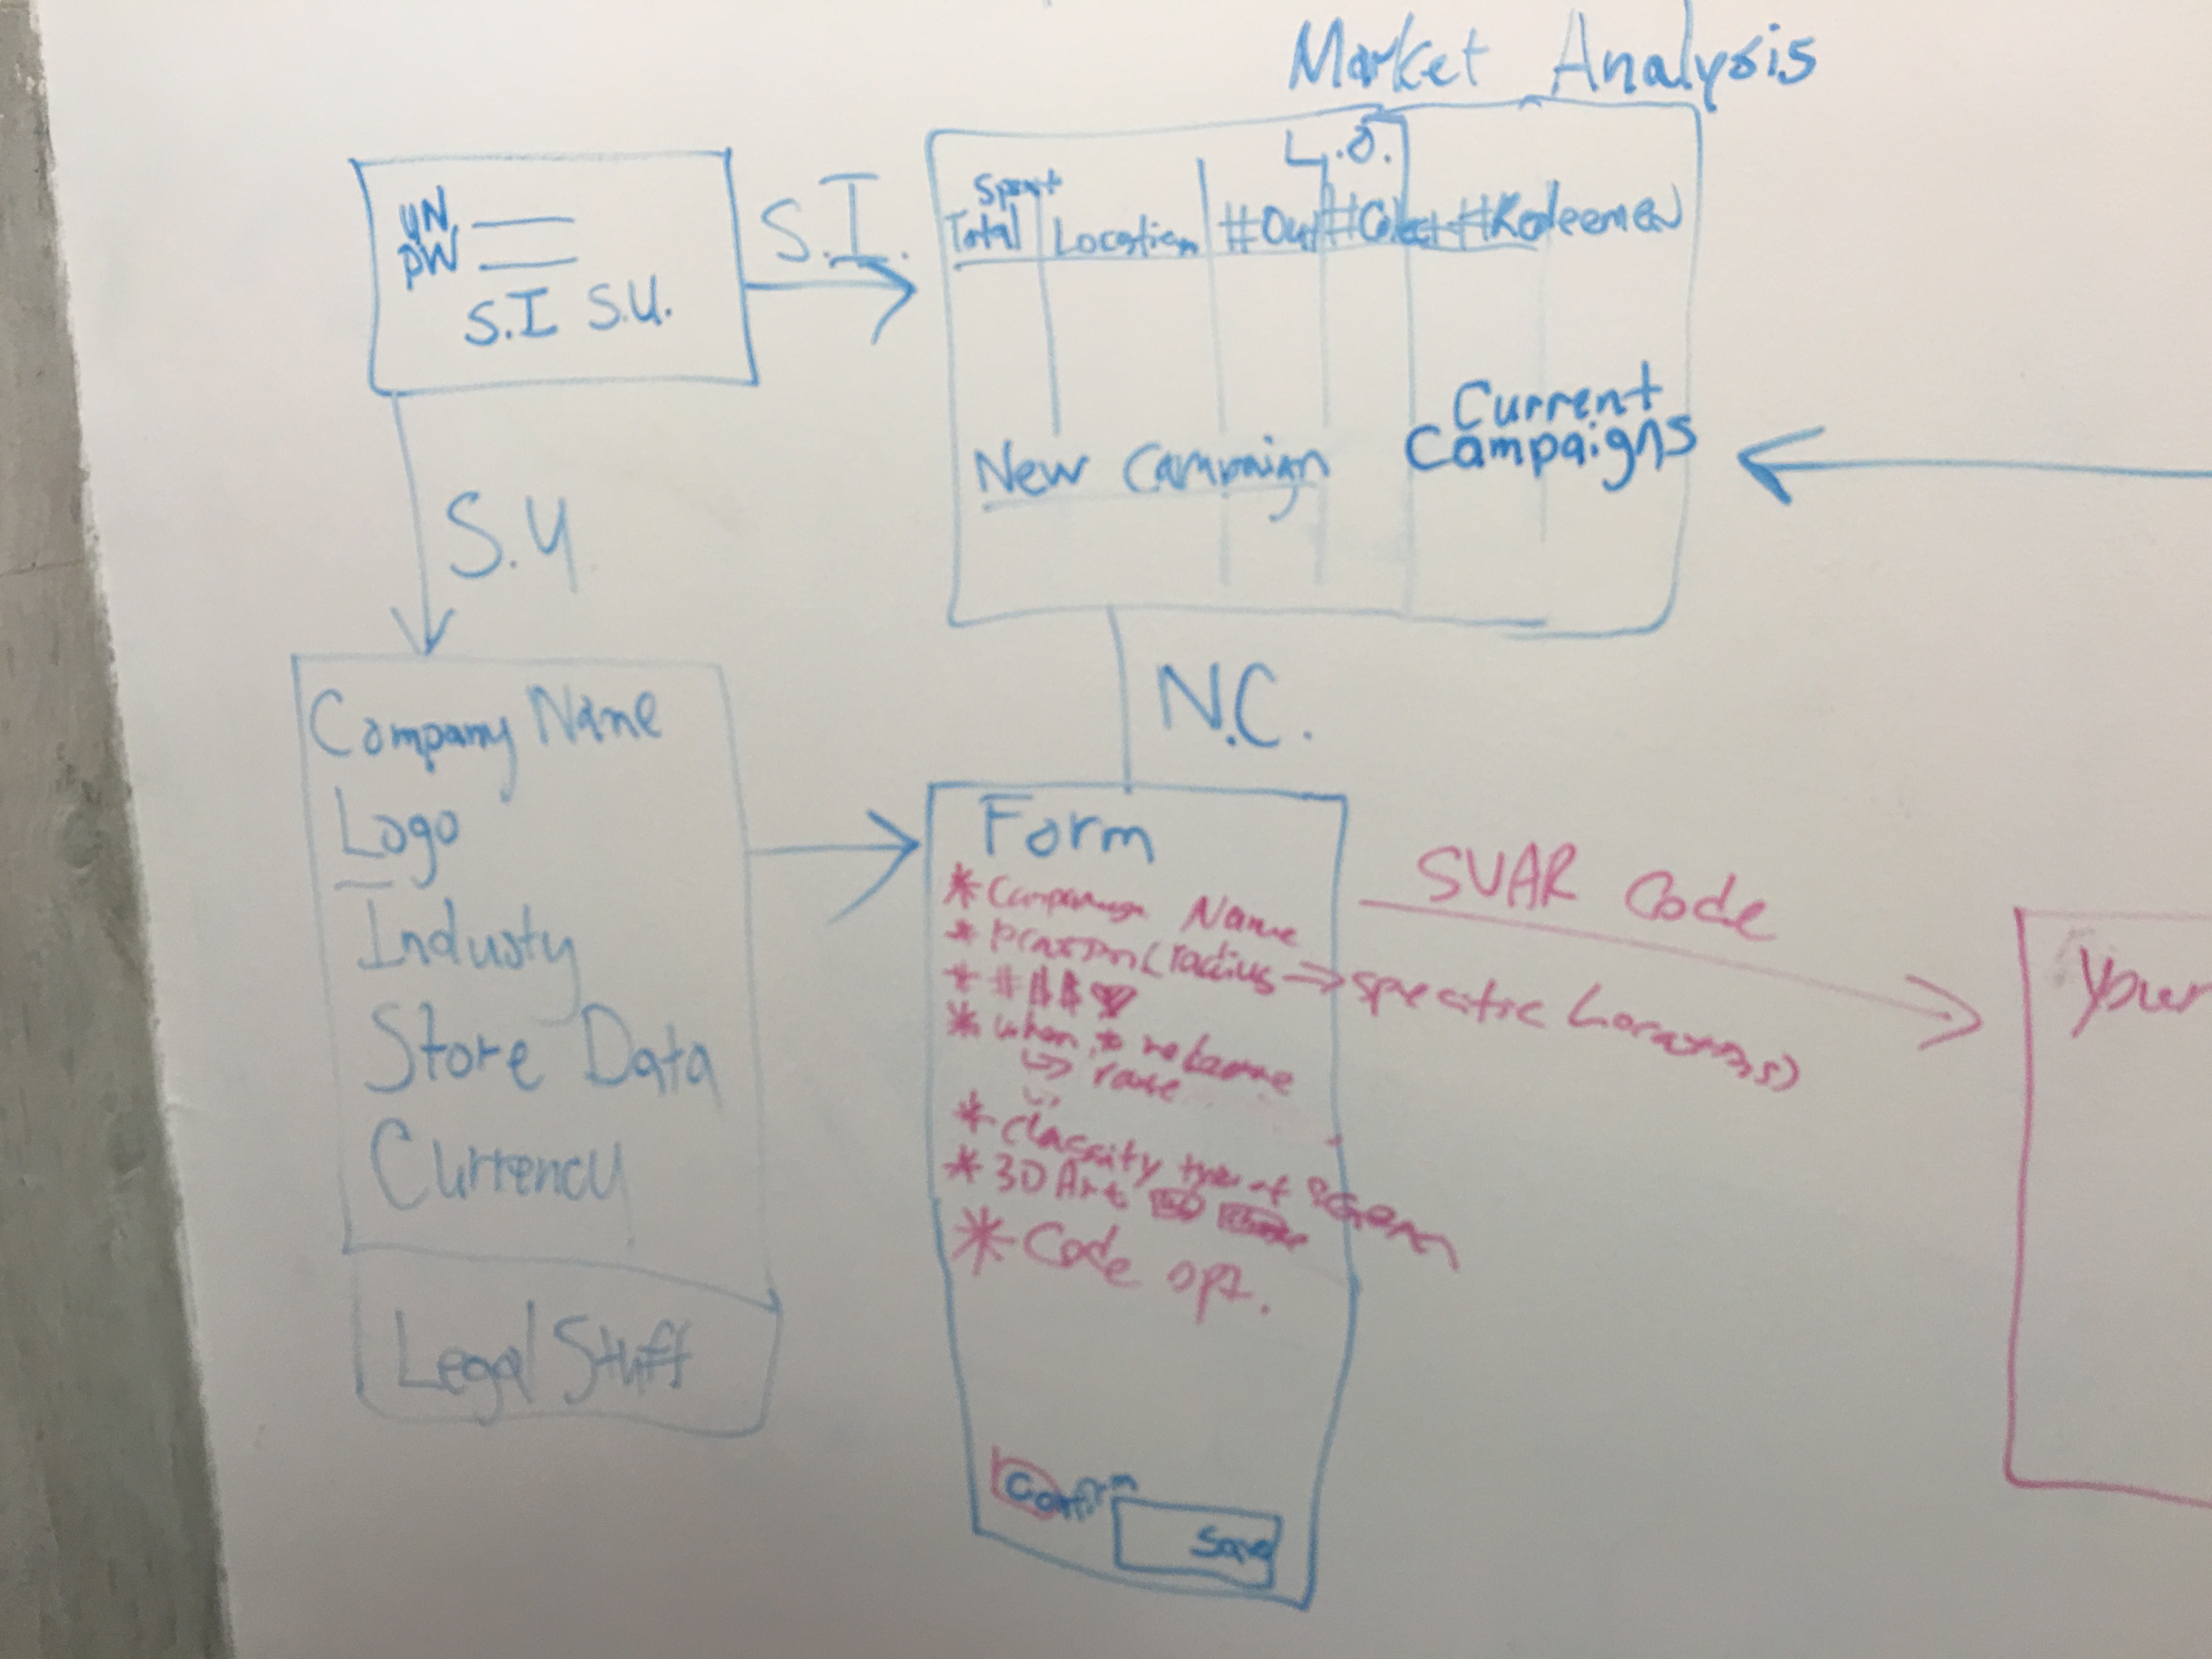 Market Analysis
UN
PW
S.I S.U.
S.I.
L.O.
Spent
Total Location #Out #Collect #Redeemed
Current
Campaigns
New Campaign
S.U
N.C.
Company Name
Logo
Industy
Store Data
Currency
Legal Stuff
Form
* Campaign Name
* (radius → specific Location(s)
* # $ $
* when to
* classify type of
* 3D Art
* Code opt.
Confirm
Save
SVAR Code
Your